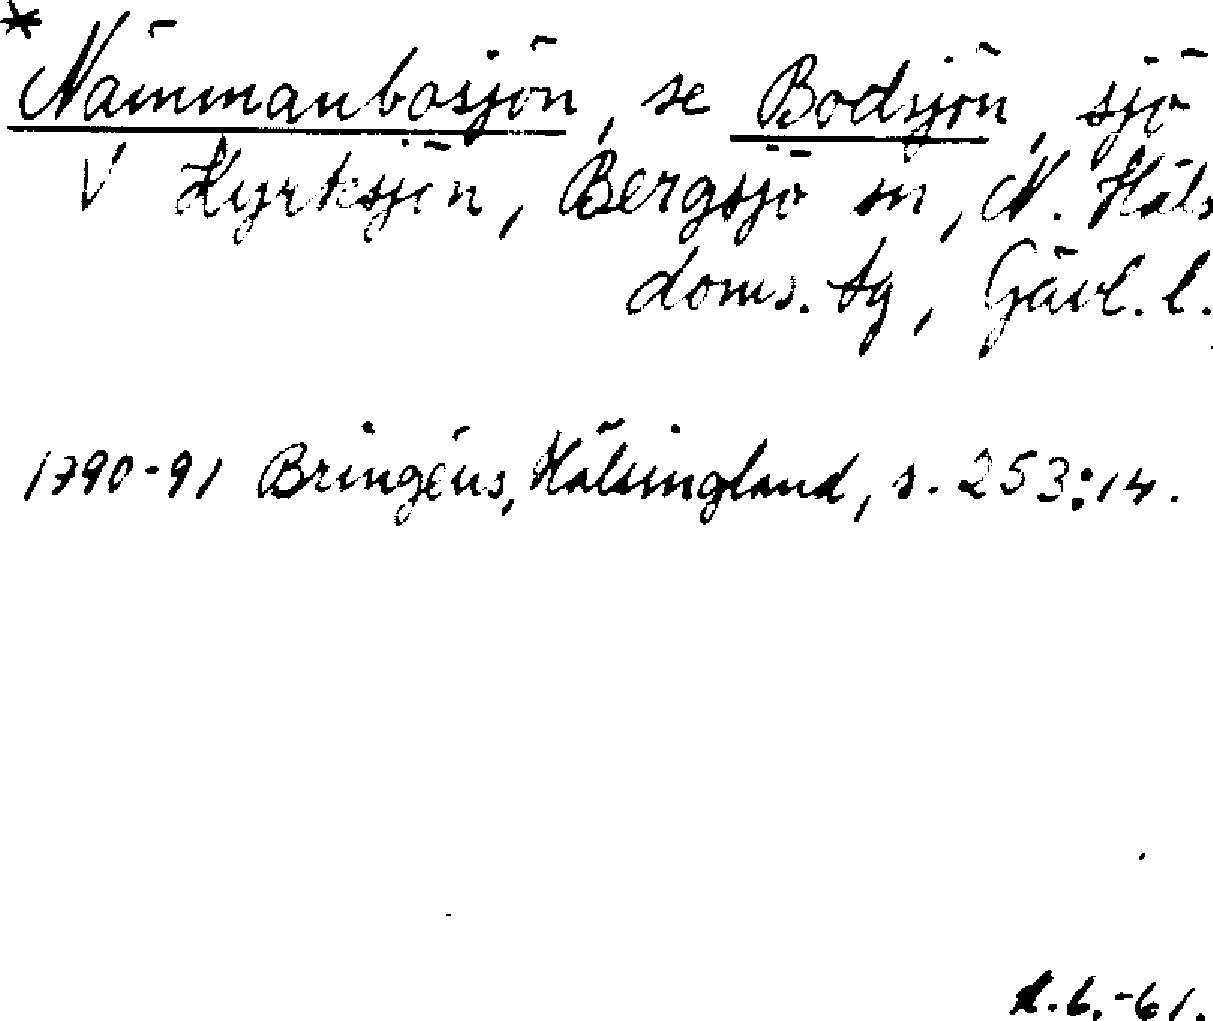 *
Nämmanbosjön, se Bodsjön, sjö
V Kyrksjön, Bergsjö sn, N. Häls
doms. tg, Gävl. l.
1790-91 Bringéus, Hälsingland, s. 253:14.
6.-61.